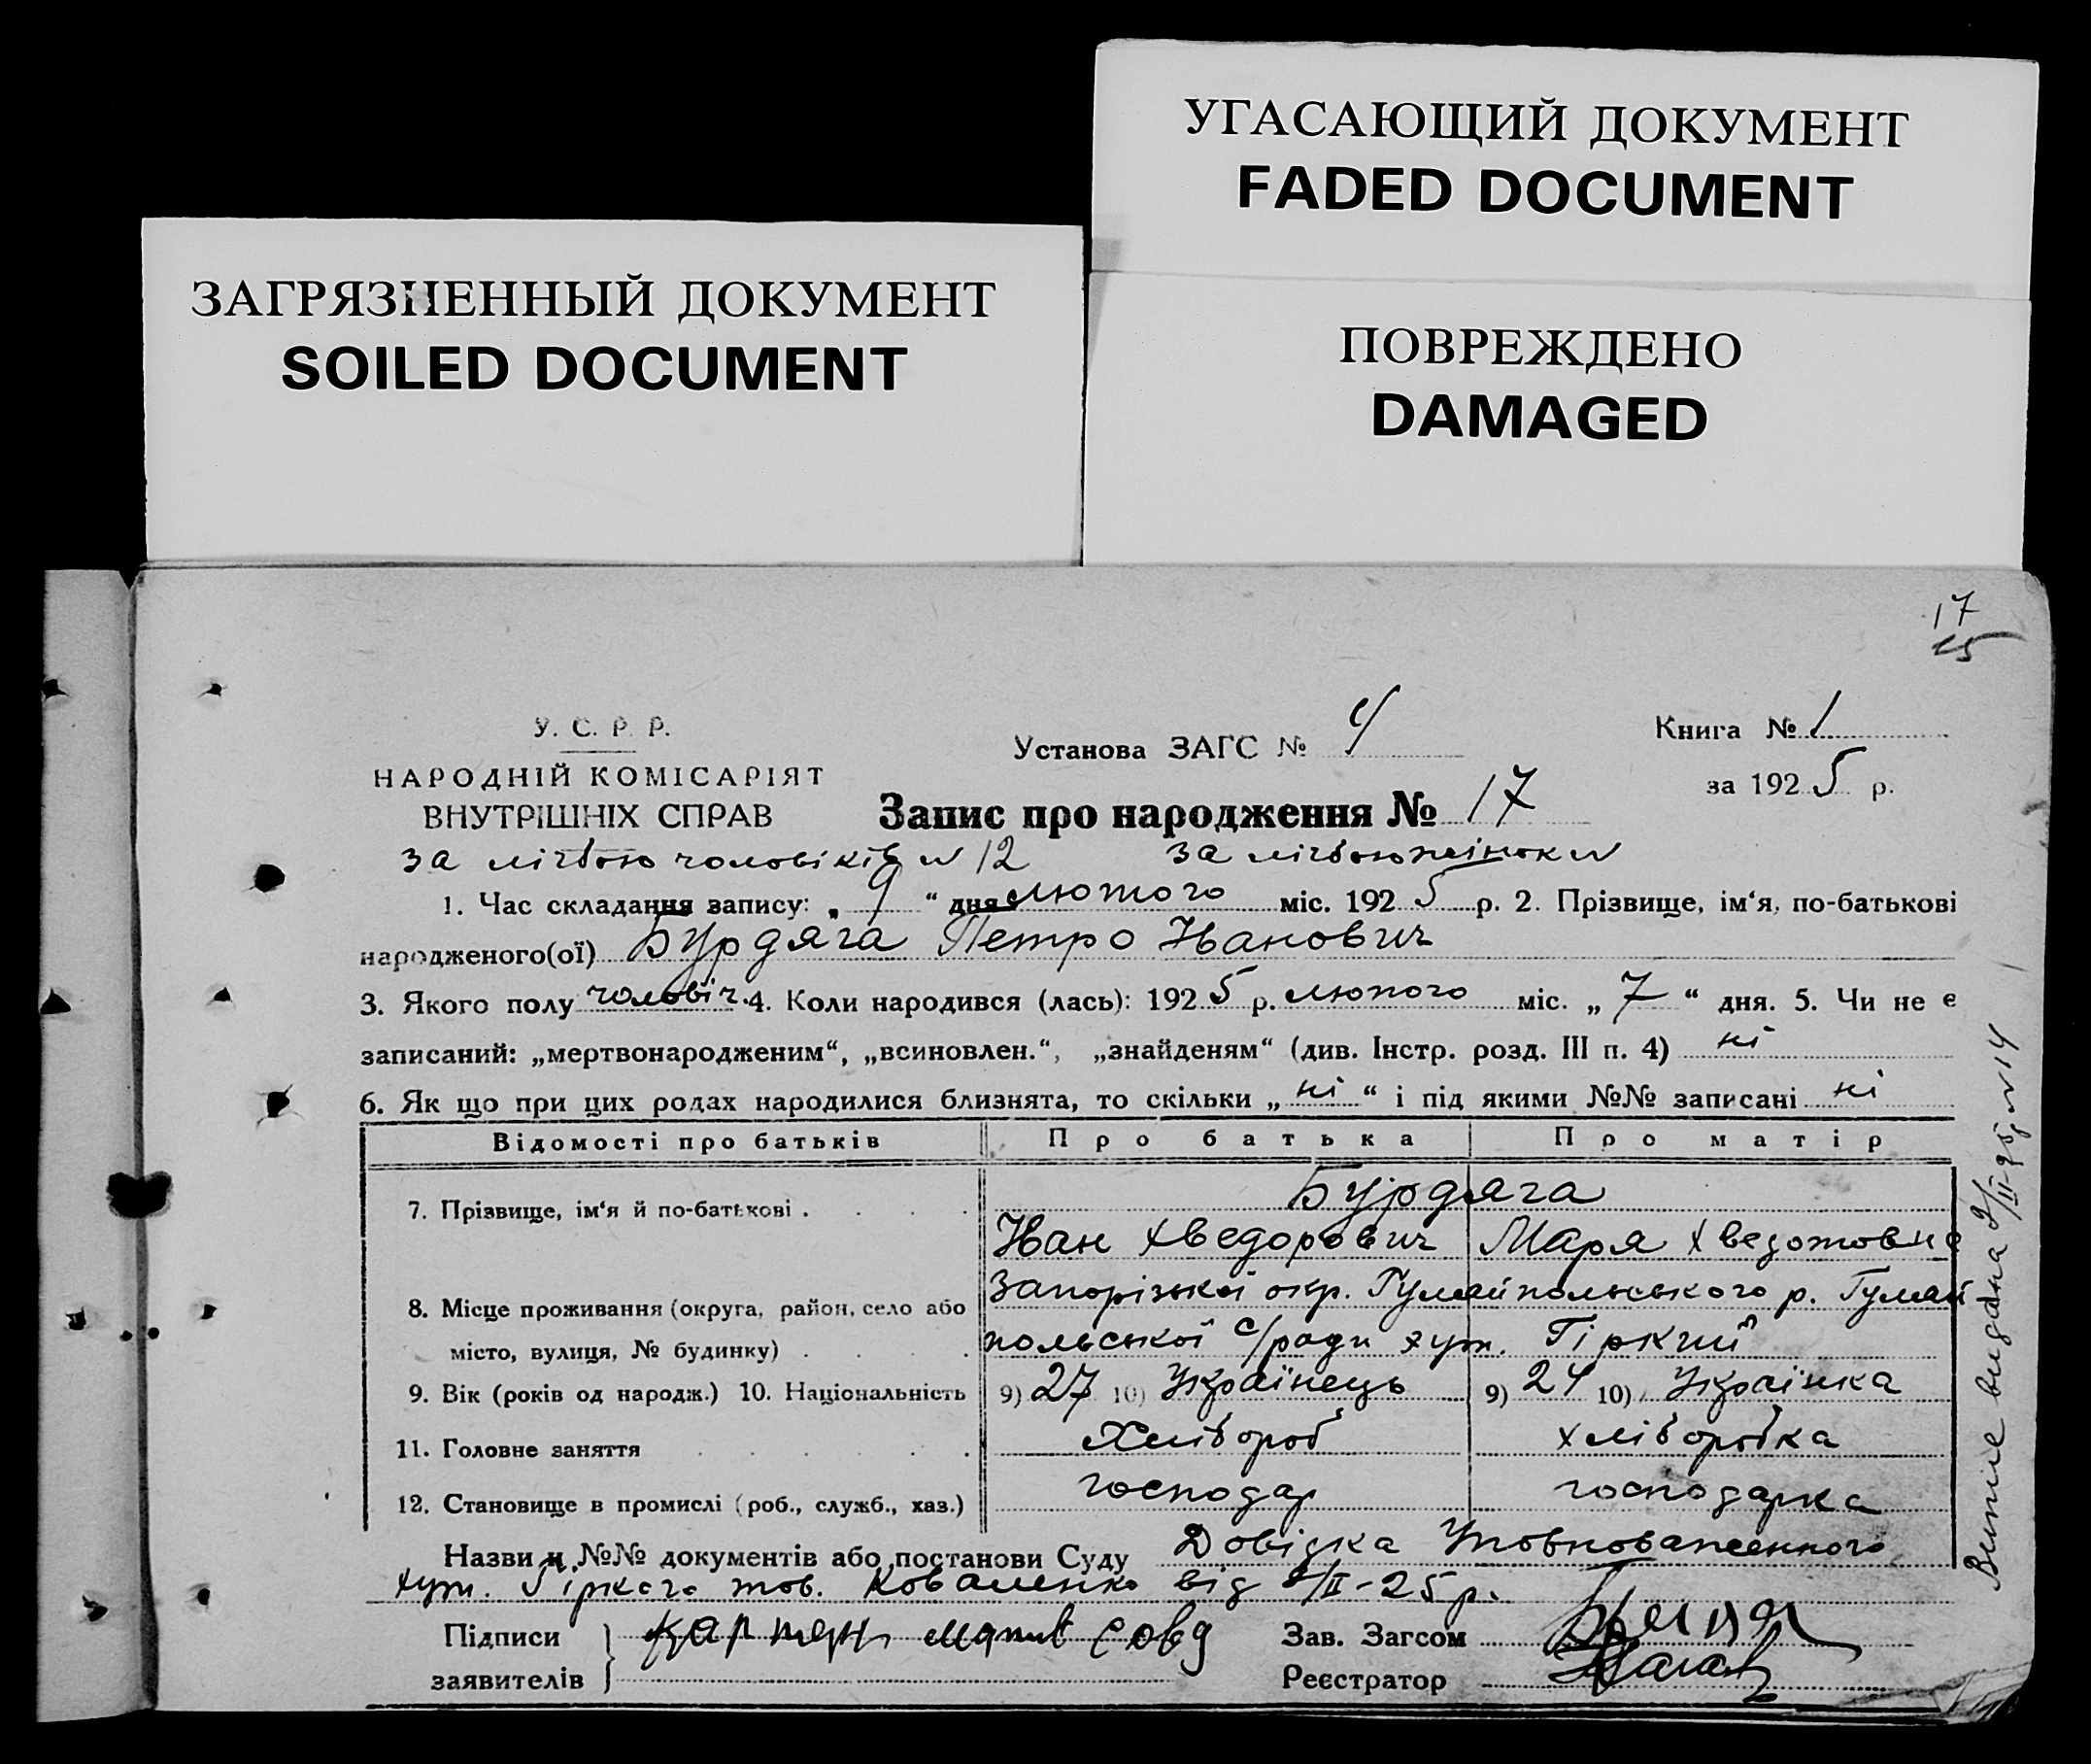 УГАСАЮЩИЙ ДОКУМЕНТ
FADED DOCUMENT
ЗАГРЯЗНЕННЫЙ ДОКУМЕНТ
SOILED DOCUMENT
ПОВРЕЖДЕНО
DAMAGED
17
25
У. С. Р. Р.
НАРОДНІЙ КОМІСАРІЯТ
ВНУТРІШНІХ СПРАВ
Установа ЗАГС № 4
Книга № 1
за 1925 р.
Запис про народження № 17
за лічбою чоловіків № 12 за лічбою жінок №
1. Час складання запису: „ 9 “ дня лютого міс. 1925 р. 2. Прізвище, ім‘я, по-батькові
народженого(ої) Бурдяга Петро Іванович
3. Якого полу чоловіч. 4. Коли народився (лась): 1925 р. лютого міс. „ 7 “ дня. 5. Чи не є
записаний: „мертвонародженим“, „всиновлен.“, „знайденям“ (див. Інстр. розд. III п. 4) ні
6. Як що при цих родах народилися близнята, то скільки „ ні “ і під якими №№ записані ні
Відомості про батьків Про батька Про матір
7. Прізвище, ім‘я й по-батькові . . . . Бурдяга
Іван Хведорович Маря Хведотовна
8. Місце проживання (округа, район, село або Запорізької окр. Гуляйпольського р. Гуляй-
місто, вулиця, № будинку) . . . . польської с/ради хут. Гіркий
9. Вік (років од народж.) 10. Національність 9) 27 10) Українець 9) 24 10) Українка
11. Головне заняття . . . . . . Хлібороб хліборобка
12. Становище в промислі (роб., служб., хаз.) господар господарка
Назви й №№ документів або постанови Суду Довідка Уповноваженного
хут. Гіркого тов. Коваленко від 8/II-25 р.
Підписи
заявителів
Зав. Загсом
Реєстратор
видана №14